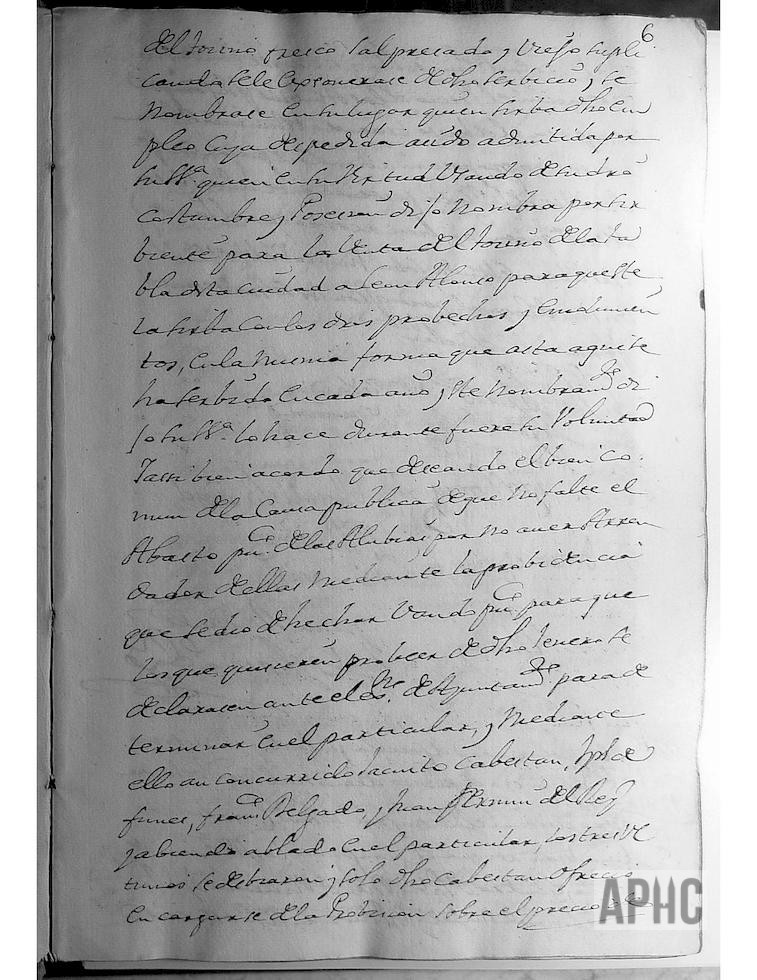 6
del tocino fresco salpresado y Viejo supli
cando se le exsonerase de dho serbicio, y se
Nombrase en su lugar quien sirba dho em
pleo Cuya despedida auido admitida por
su Sª. quien en su Virtud Usando de su dro
Costumbre y Posesion dijo Nombra por sir
biente para la Venta del tocino de la ta
bla desta ciudad a Leon Alonso para que este
la sirba con los dris probechos y emolumen
tos, en la misma forma que asta aqui se
ha serbido en cada año y este Nombram.to di
jo su Sª. lo hace durante fuere su Voluntad
Tassi bien acordo que deseando el bien Co
mun de la Causa publica de que No falte el
Abasto pu.co de las Alubias por No auer Arren
dador de ellas Mediante la probidencia
que se dio de hechar Vando pu.co para que
los que quisieren probeer de dho Jenero se
declarasen ante el es.no de Ayuntam.to para de
terminar en el particular, y Mediante
ello an concurrido Jacinto Cabestan, Jph de
funes, fran.co Delgado, y Juan fermin del Rey
y abiendo ablado en el particular, los tres Ul
timos se debiaron y solo dho Cabestan ofrecio
en cargarse de la Probision sobre el precio de
APHC